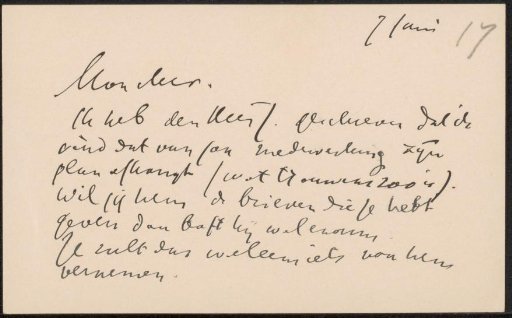 7 Juni 17
Mon cher.
Ik heb den Heer J. geschreven dat ik
vind dat van jou medewerking zijn
plan afhangt (wat trouwens zoo is).
Wil jij hem de brieven die je hebt
geven dan hij wel
Je zult dus wel eens iets van hem
vernemen.